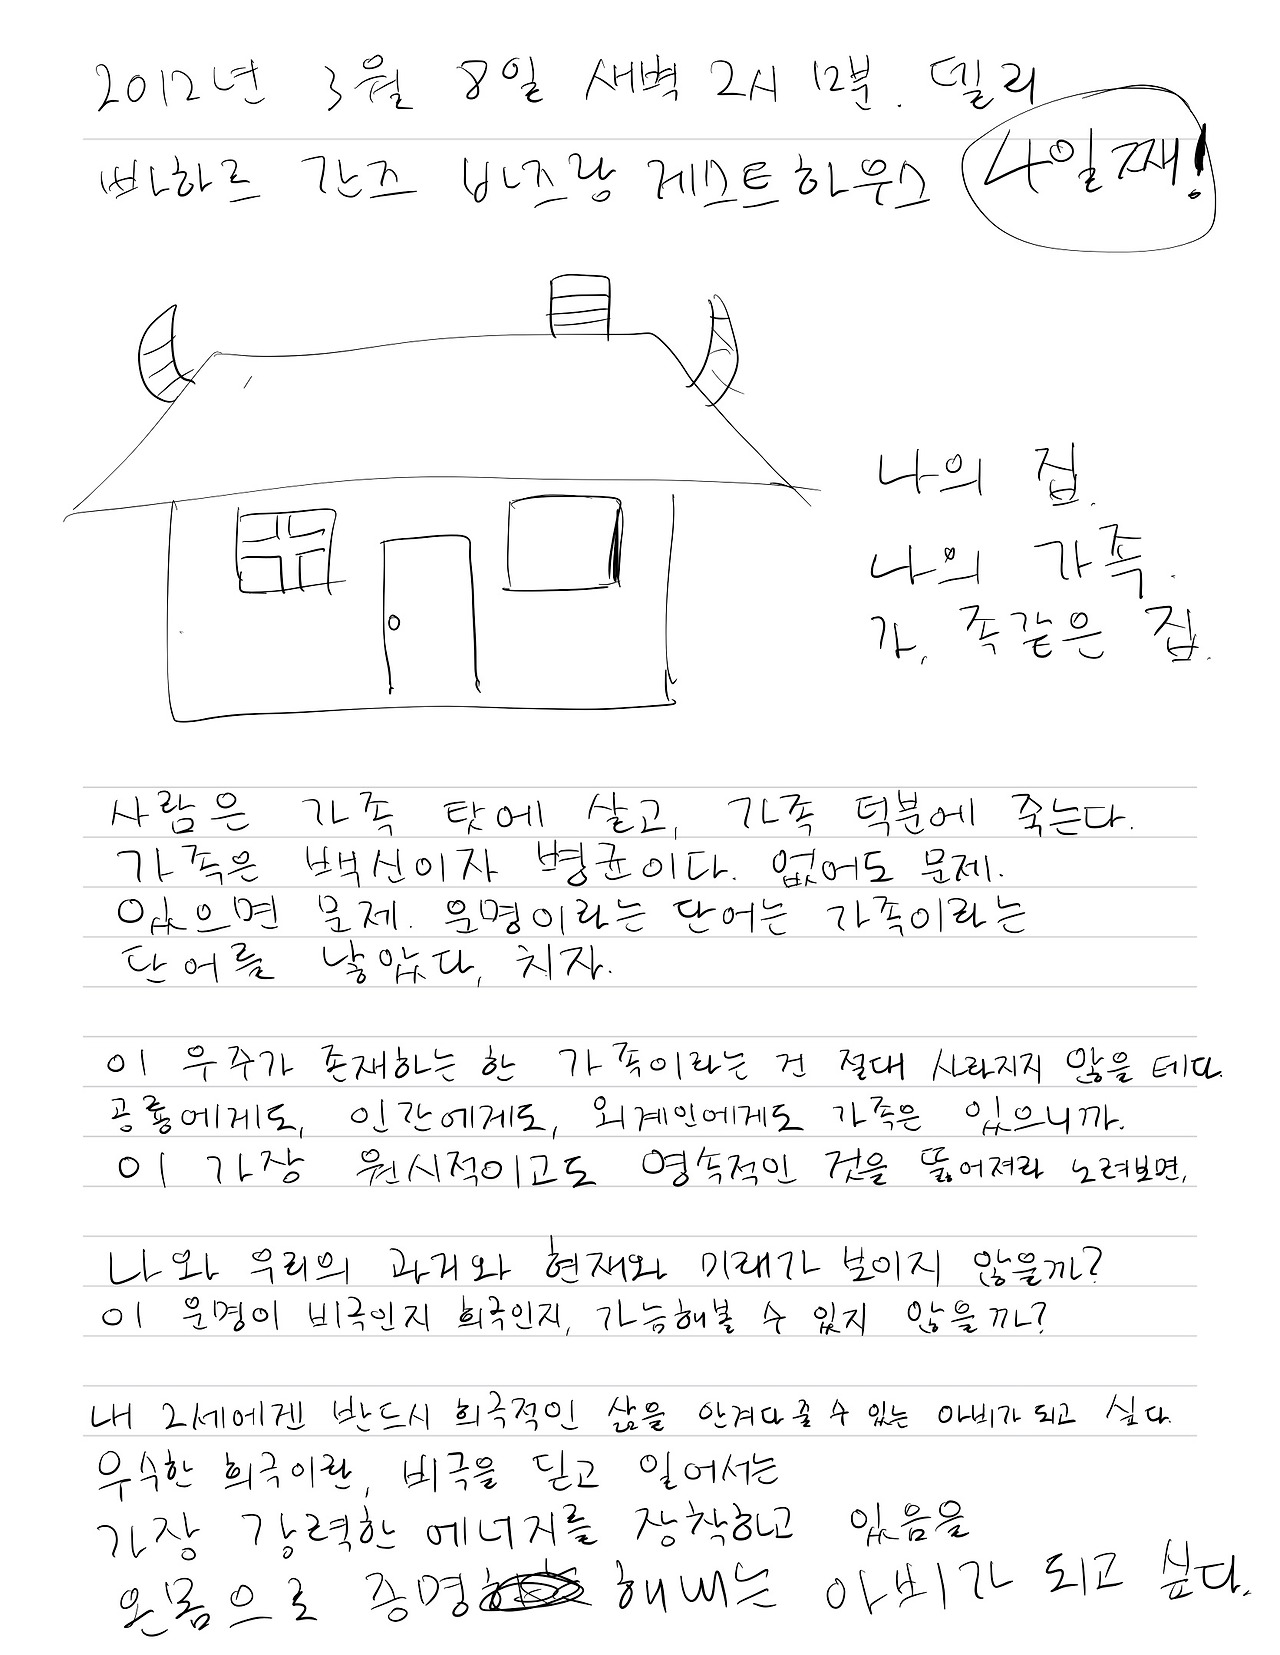 2012년 3월 8일 새벽 2시 12분. 델리
빠하르 간즈 바즈랑 게스트하우스 4일째!
나의 집.
나의 가족.
가, 족같은 집.
사람은 가족 탓에 살고, 가족 덕분에 죽는다.
가족은 백신이자 병균이다. 없어도 문제.
있으면 문제. 운명이라는 단어는 가족이라는
단어를 낳았다, 치자.
이 우주가 존재하는 한 가족이라는 건 절대 사라지지 않을 테다.
공룡에게도, 인간에게도, 외계인에게도 가족은 있으니까.
이 가장 원시적이고도 영속적인 것을 뚫어져라 노려보면,
나와 우리의 과거와 현재와 미래가 보이지 않을까?
이 운명이 비극인지 희극인지, 가늠해볼 수 있지 않을까?
내 2세에겐 반드시 희극적인 삶을 안겨다 줄 수 있는 아비가 되고 싶다.
우수한 희극이란, 비극을 딛고 일어서는
가장 강력한 에너지를 장착하고 있음을
온몸으로 증명 해내는 아비가 되고 싶다.